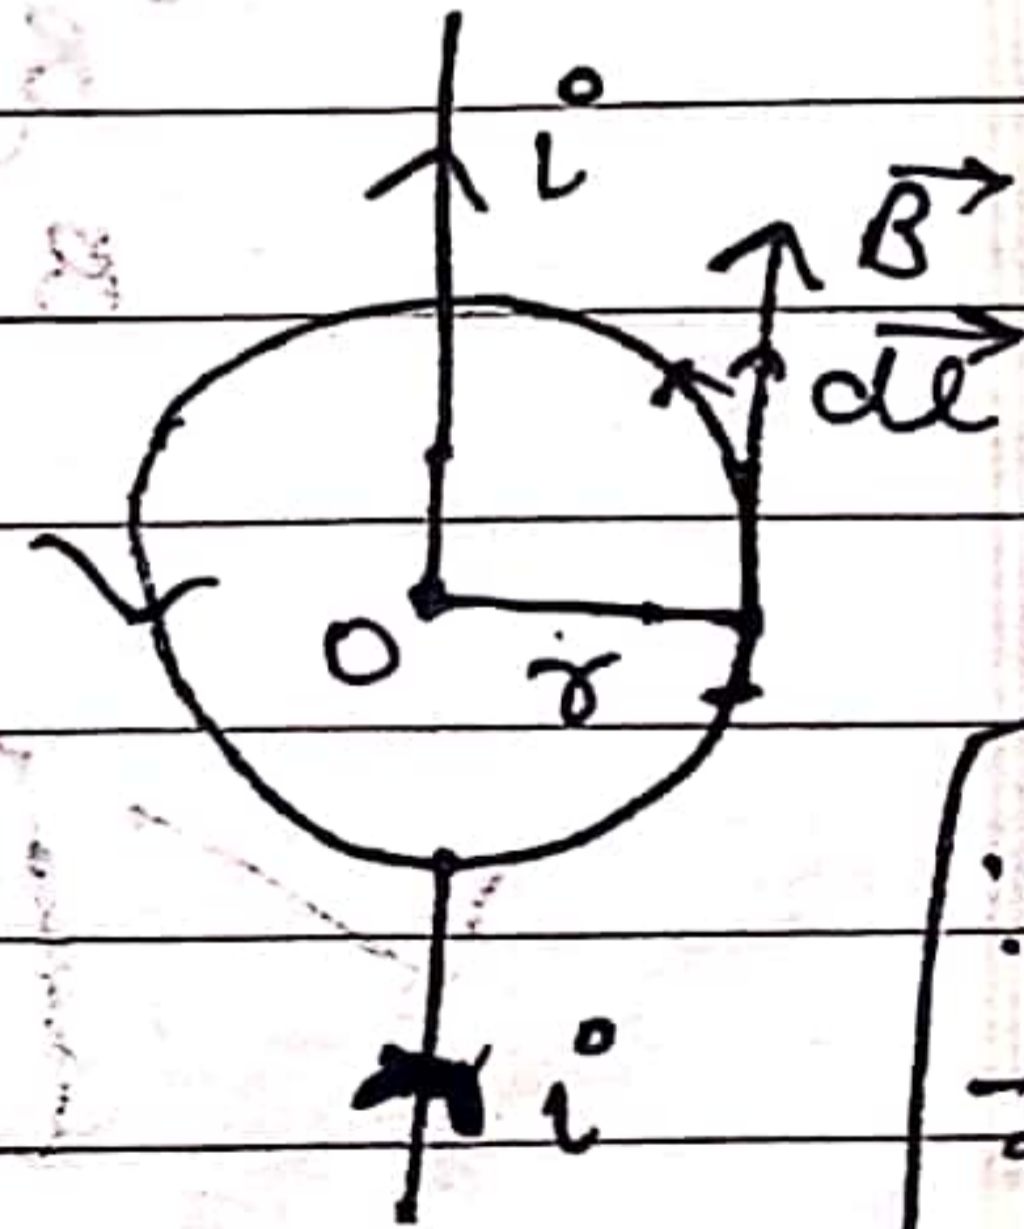 i
B⃗
dl⃗
O
r
i